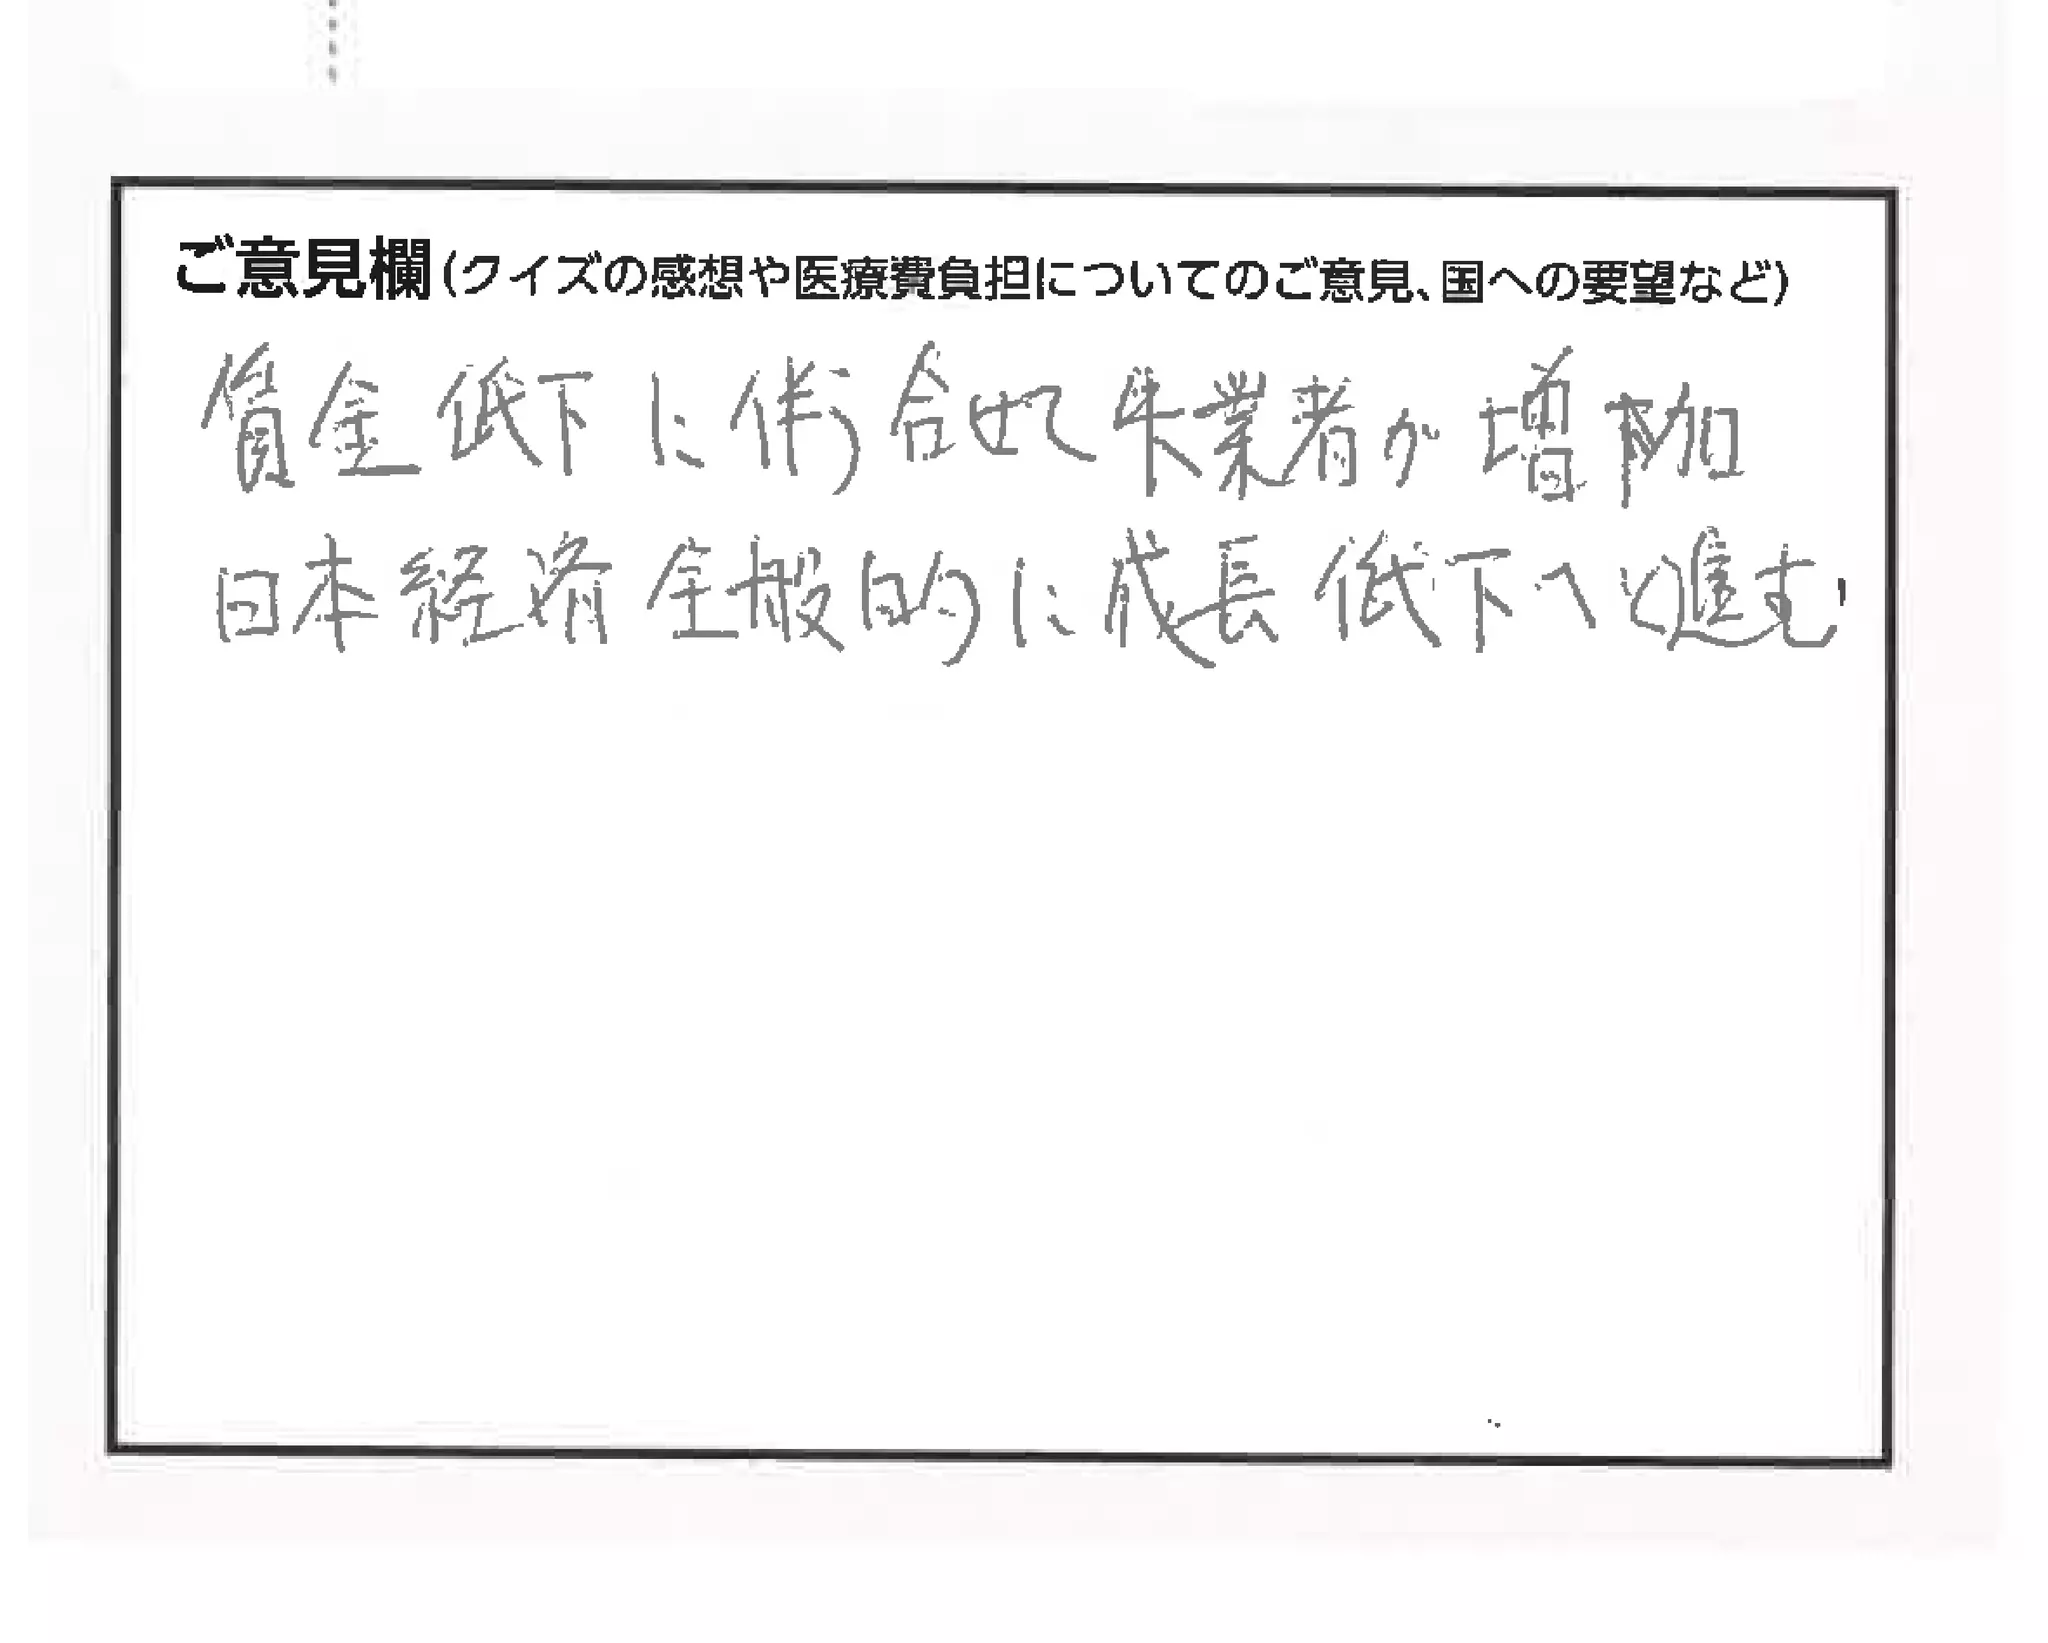 ご意見欄(クイズの感想や医療費負担についてのご意見、国への要望など)
賃金低下に伴う合せて失業者が増加
日本経済全般的に成長低下へと進む